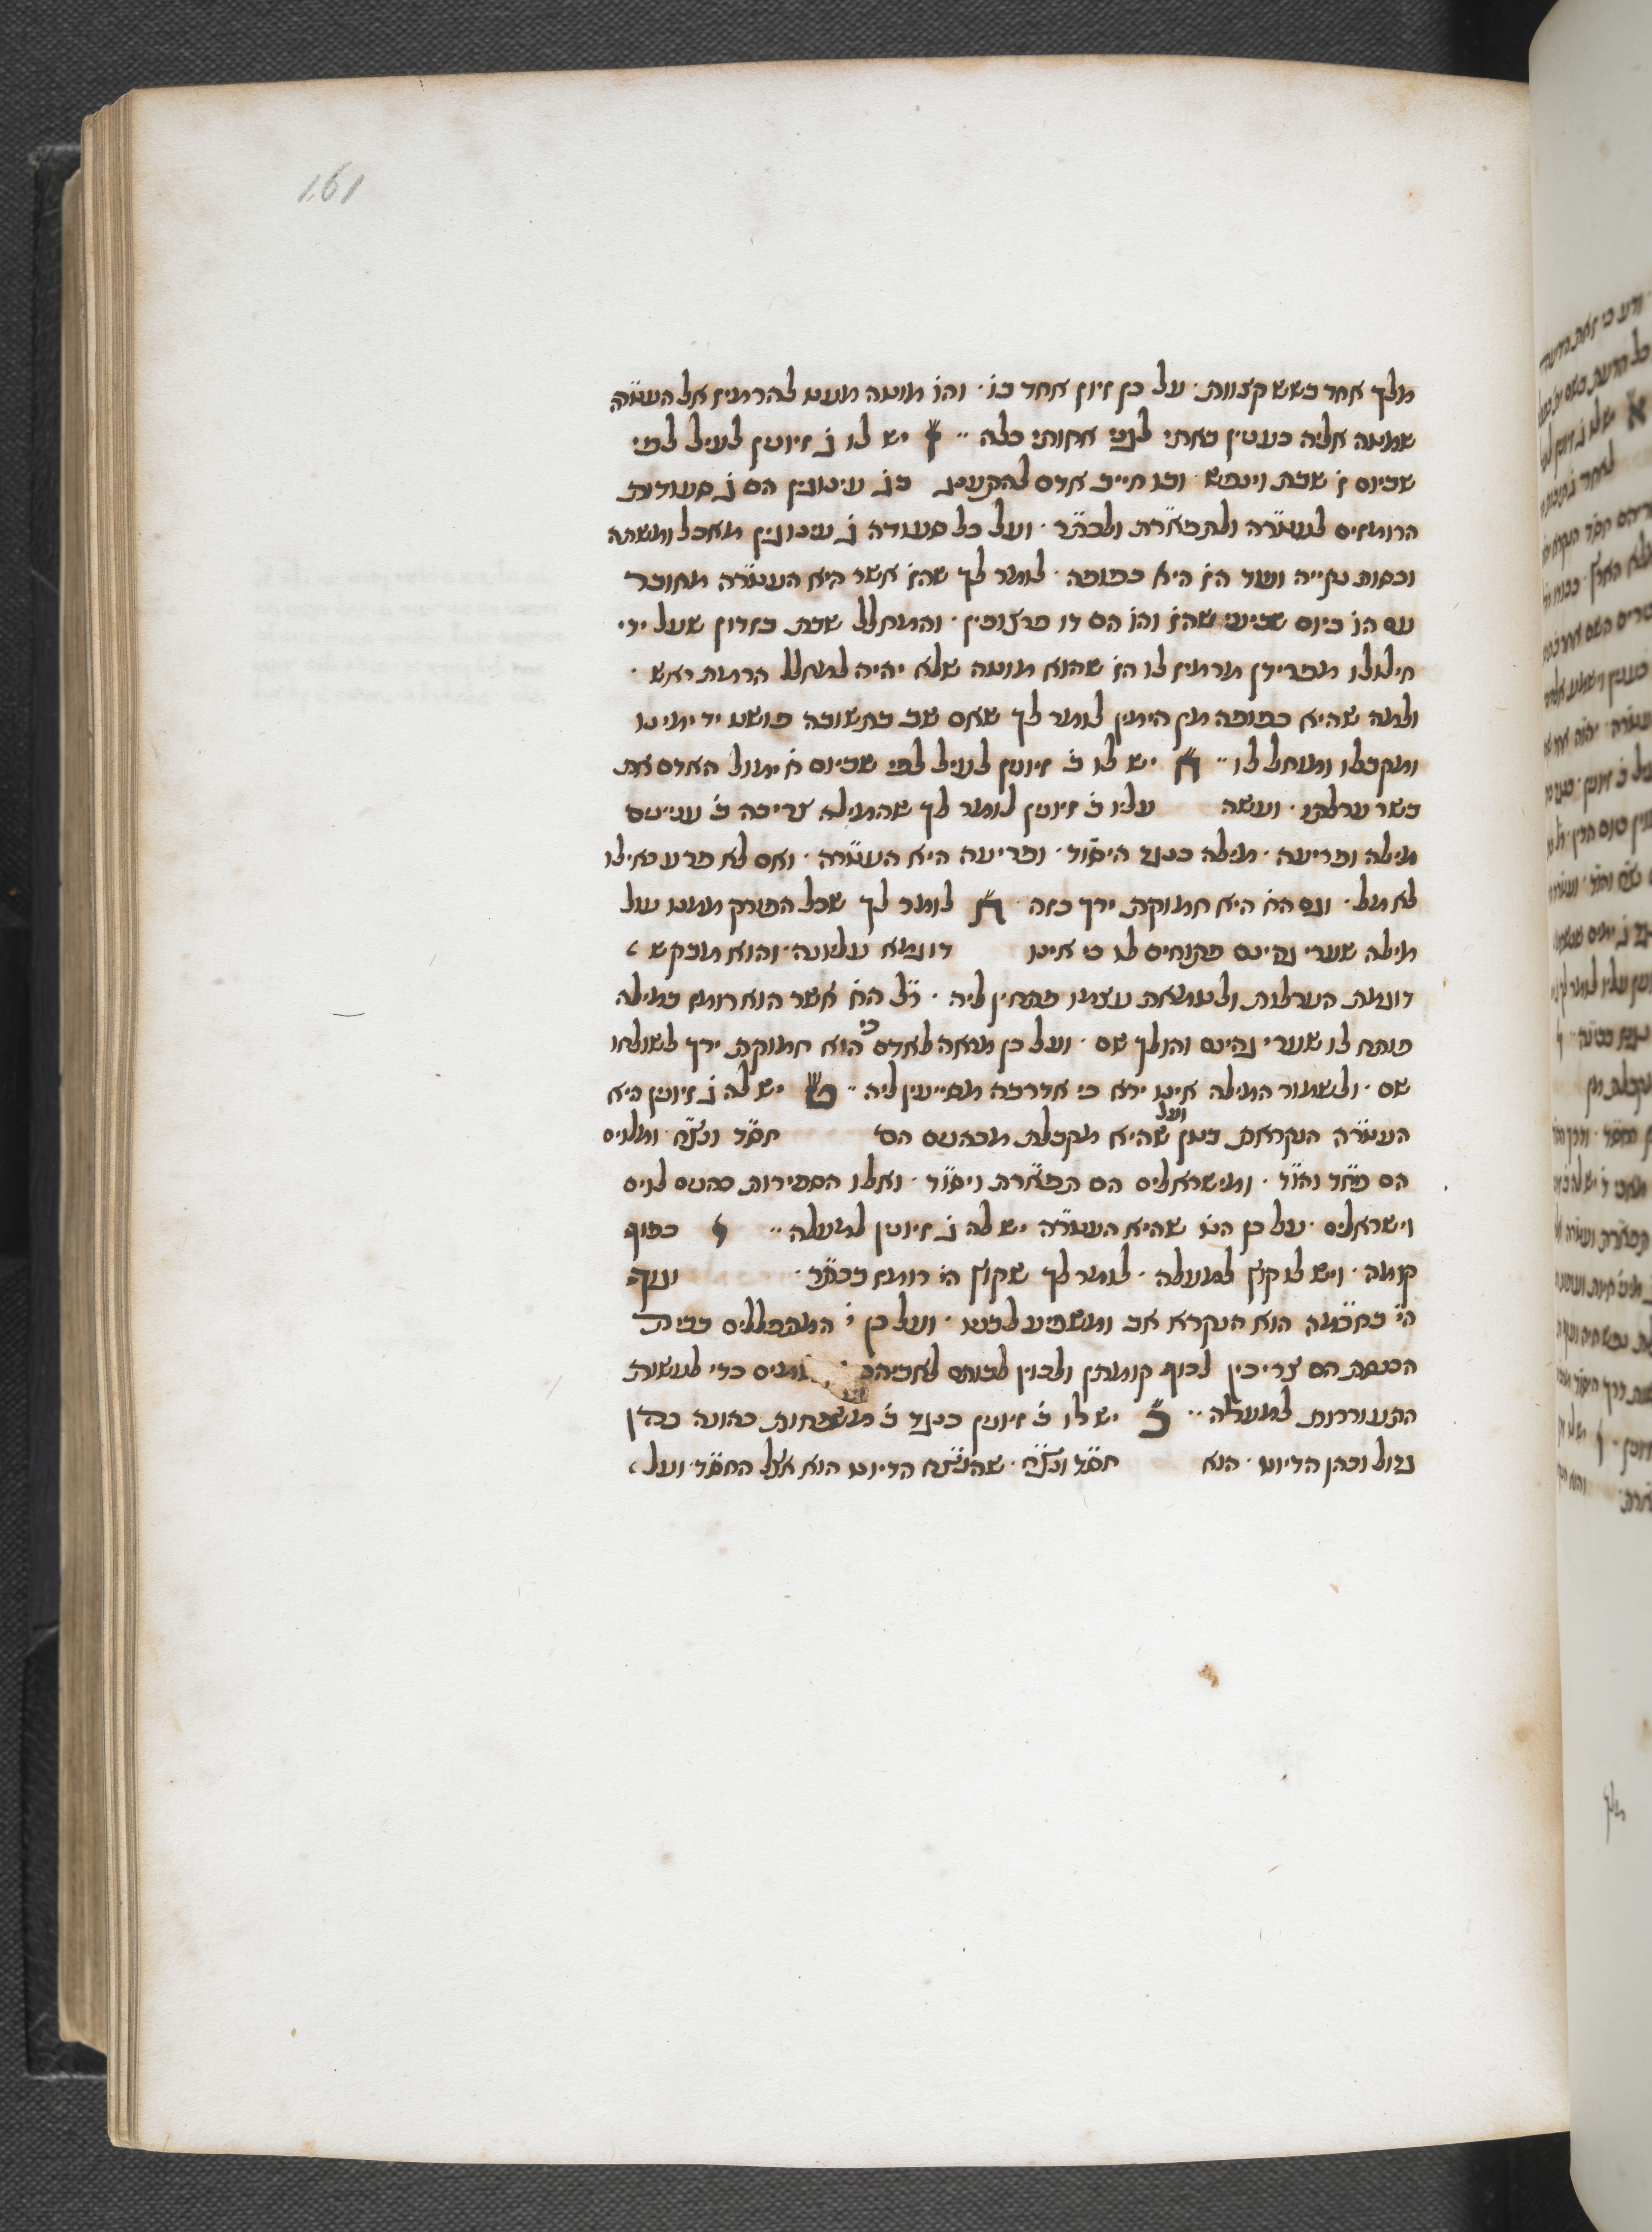 161
מלך אחד בשש קצוות · על כן זיון אחד בו · והו מוטה מעט להרמיז אל העטרה
שמטה אליה כעניין באתי לגני אחותי כלה ·· ז יש לו ג זיונין לעיל לפי
שביום ז שבת וינפש · ובו חייב אדם להתענג בג עינוגין הם ג סעודות
הרומזים לעטרה ולתפארת ולכתר · ועל כל סעודה ג עינוגין מאכל ומשתה
וכסות נקייה ועוד הז היא כפופה · לומר לך שהז אשר היא העטרה מחובר
עם הו ביום שביעי שהז והו הם דו פרצופין · והמחלל שבת בזדון שעל ידי
חילולו מפרידן מרמיז לו הז שהוא מוטה שלא יהיה למחלל הרמת ראש ·
ולמה שהיא כפופה מן הימין לומר לך שאם שב בתשובה פושט יד ימינו
ומקבלו ומוחל לו ·· ח יש לו ב זיונין לעיל לפי שביום ח ימול האדם את
בשר ערלתו · ועשה עליו ב זיונין לומר לך שהמילה צריכה ב עניינים
מילה ופריעה · מילה כנגד היסוד · ופריעה היא העטרה · ואם לא פרע כאילו
לא מל · וגם הח היא חמוקת ירך כזה · ח לומר לך שכל הפורק ממנו עול
מילה שערי גהינם פתוחים לו כי אינו דוגמא עליונה · והוא מבקש
דוגמת הערלות ולטומאת עצמו פתחין ליה · ר״ל הח אשר הוא רומז במילה
פותח לו שערי גהינם והולך שם · ועל כן מראה לאדם כי הוא חמוקת ירך לשולחו
שם · ולשמור המילה אינו ירא כי אדרבה מסייעין ליה ·· ט יש לה ג זיונין היא
העטרה הנקראת בטן ועל שהיא מקבלת מכהנים הם חסד ונצח · ומלוים
הם פחד והוד · ומישראלים הם תפארת ויסוד · ואלו הספירות כהנים לוים
וישראלים · על כן הט שהיא העטרה יש לה ג זיונין למעלה ·· י כפוף
קומה · ויש לו קוץ למעלה · לומר לך שקוץ הי רומז בכתר · וגוף
הי בחכמה הוא הנקרא אב ומשפיע לבנו · ועל כן י המתפללים בבית
הכנסת הם צריכין לכוף קומתן ולכוין לבותם לאביהם כדי לעשות
התעוררות למעלה ·· כ יש לו ב זיונין כנגד ב משפחות כהונה כהן
גדול וכהן הדיוט · הוא חסד ונצח · שהנצח הדיוט הוא אצל החסד · ועל